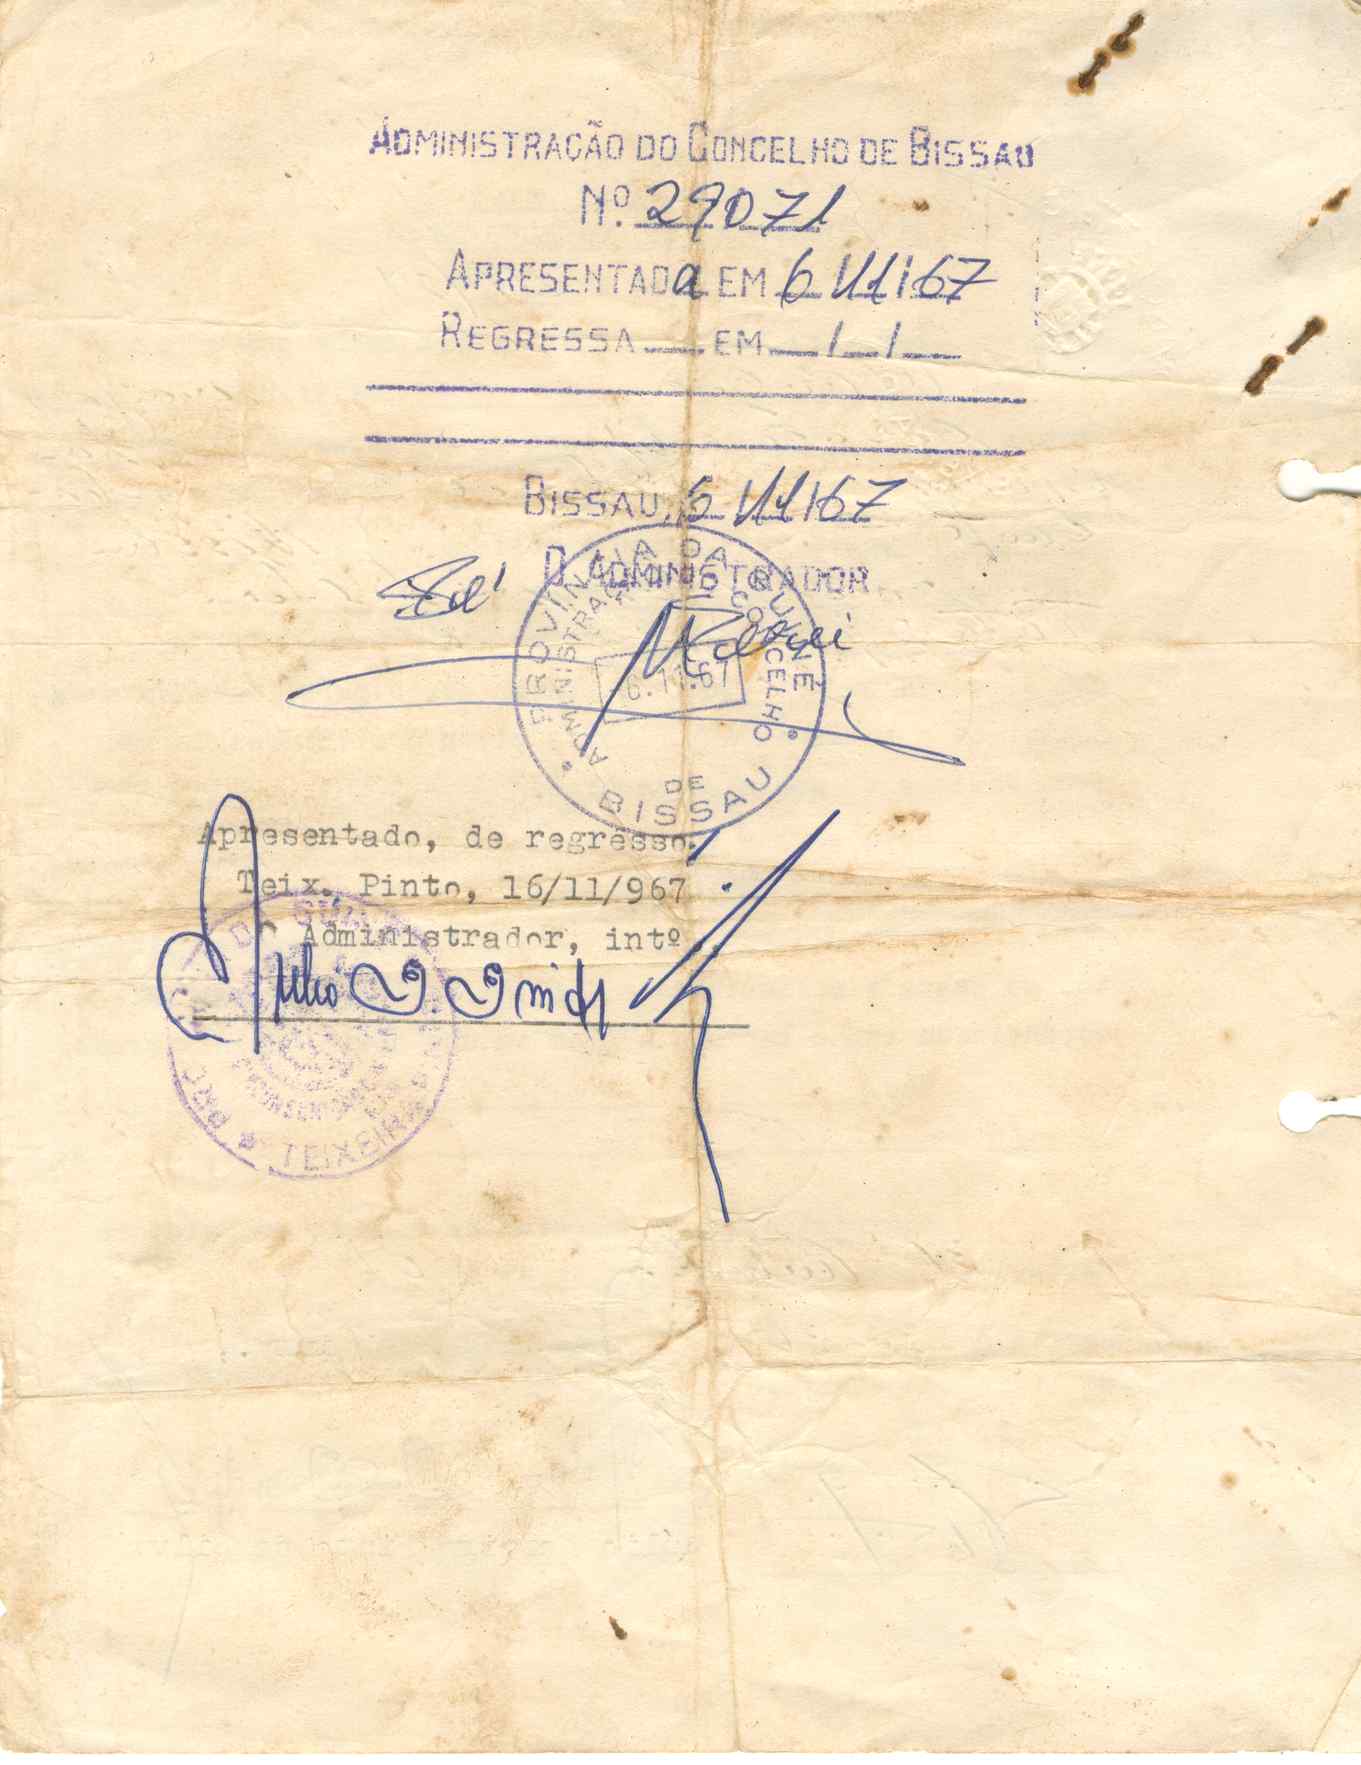 ADMINISTRAÇÃO DO CONCELHO DE BISSAU
Nº. 29071
APRESENTADa EM 6/11/67
REGRESSA ___ EM ___/___/___
BISSAU, 6/11/67
O ADMINISTRADOR
PROVÍNCIA DA GUINÉ
ADMINISTRAÇÃO CONCELHO
6.11.67
DE
BISSAU
Apresentado, de regresso.
Teix. Pinto, 16/11/967
O Administrador, intº.,
TEIXEIRA